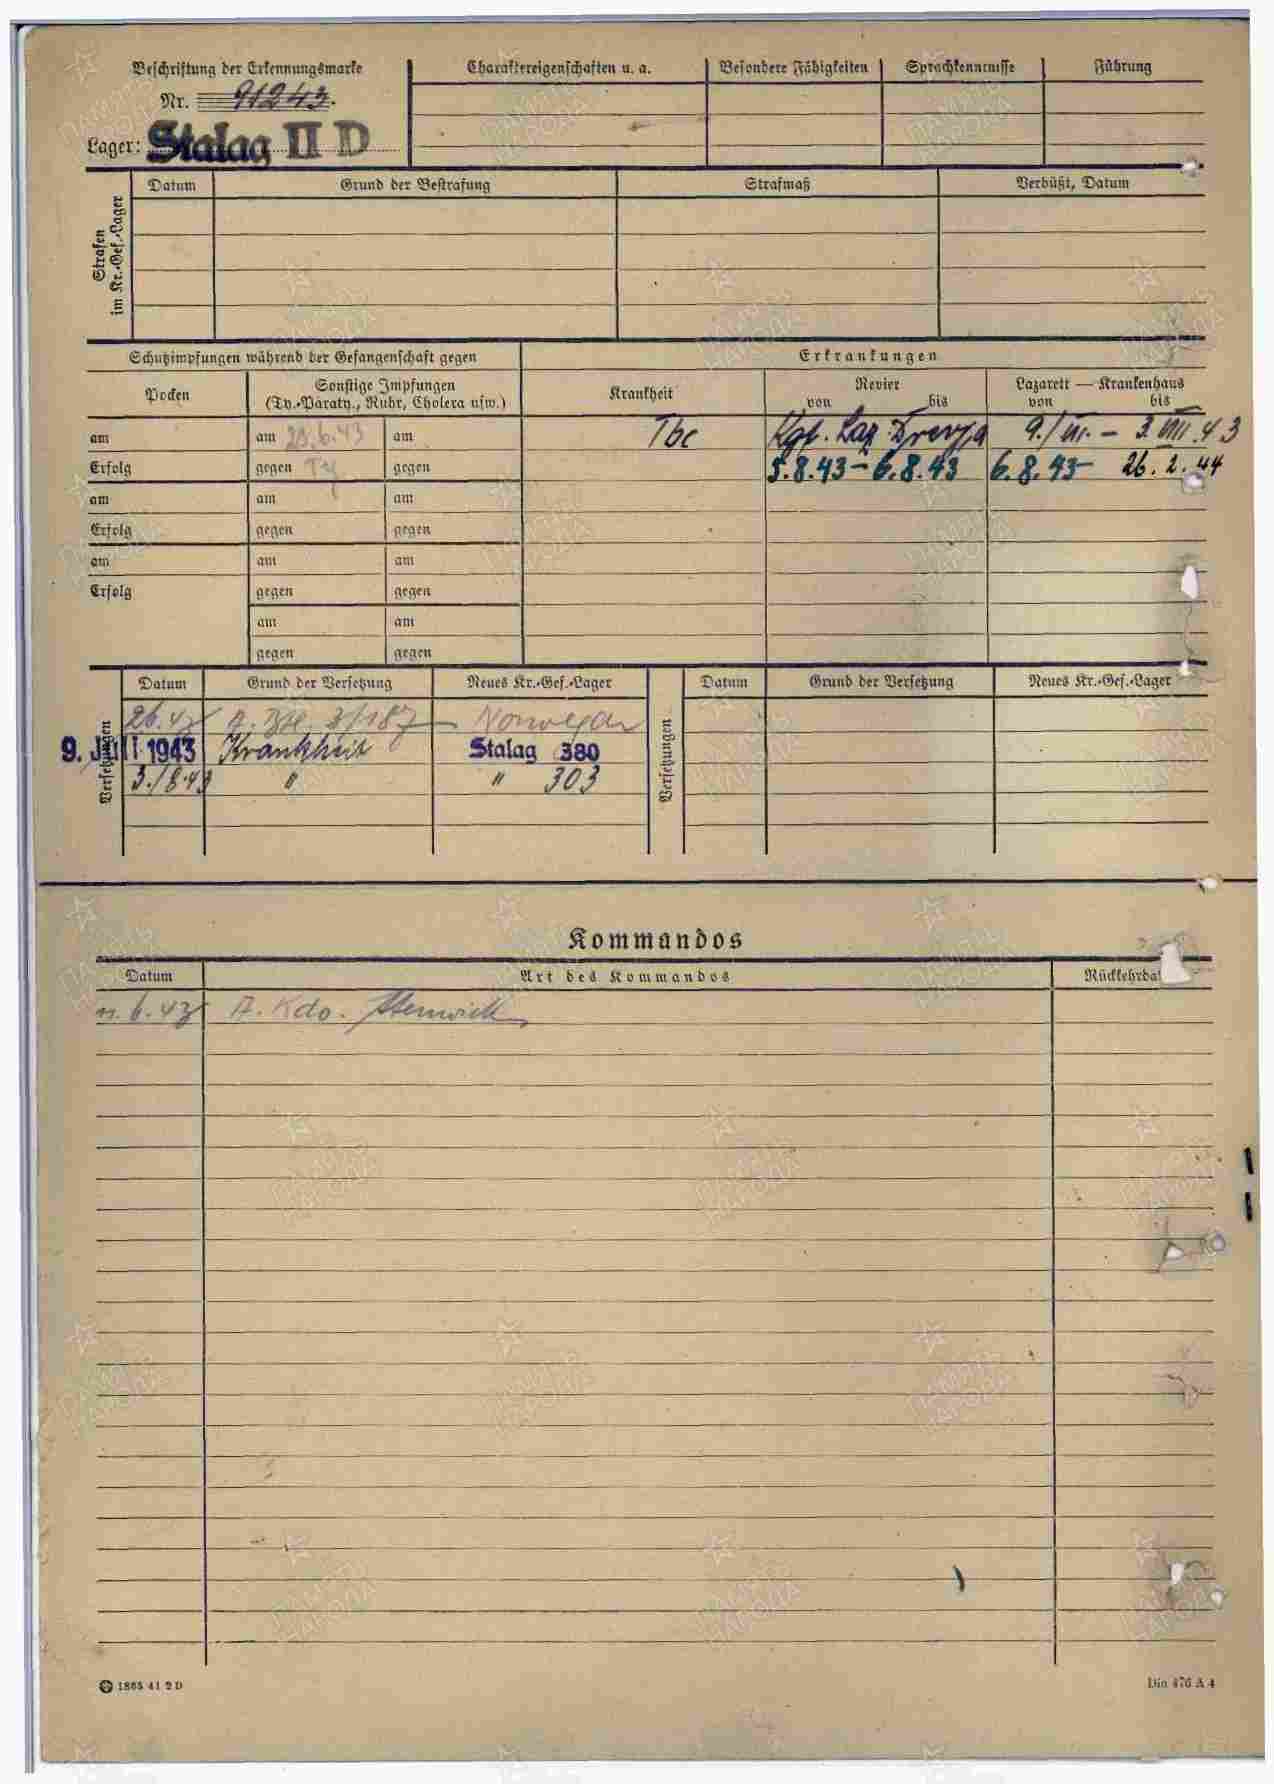 Beschriftung der Erkennungsmarke
Nr. 91243.
Lager: Stalag II D
Charaktereigenschaften u. a.
Besondere Fähigkeiten
Sprachkenntnisse
Führung
Strafen
im Kr.-Gef.-Lager
Datum
Grund der Bestrafung
Strafmaß
Verbüßt, Datum
Schutzimpfungen während der Gefangenschaft gegen
Erkrankungen
Pocken
Sonstige Impfungen
(Ty.-Paraty., Ruhr, Cholera usw.)
Krankheit
Revier
von bis
Lazarett — Krankenhaus
von bis
am am 23.6.43 am Tbc Kgf. Laz. Drevja 9./VII. – 3.VIII.43
Erfolg gegen Ty gegen 5.8.43 – 6.8.43 6.8.43 – 26.2.44
am am am
Erfolg gegen gegen
am am am
Erfolg gegen gegen
am am
gegen gegen
Versetzungen
Datum Grund der Versetzung Neues Kr.-Gef.-Lager
26.43 Norwegen
9. Juli 1943 Krankheit Stalag 380
3./8.43 " " 303
Versetzungen
Datum Grund der Versetzung Neues Kr.-Gef.-Lager
Kommandos
Datum Art des Kommandos Rückkehrda
6.43 A. Kdo.
1865 41 2 D
Din 476 A 4
ПАМЯТЬ НАРОДА